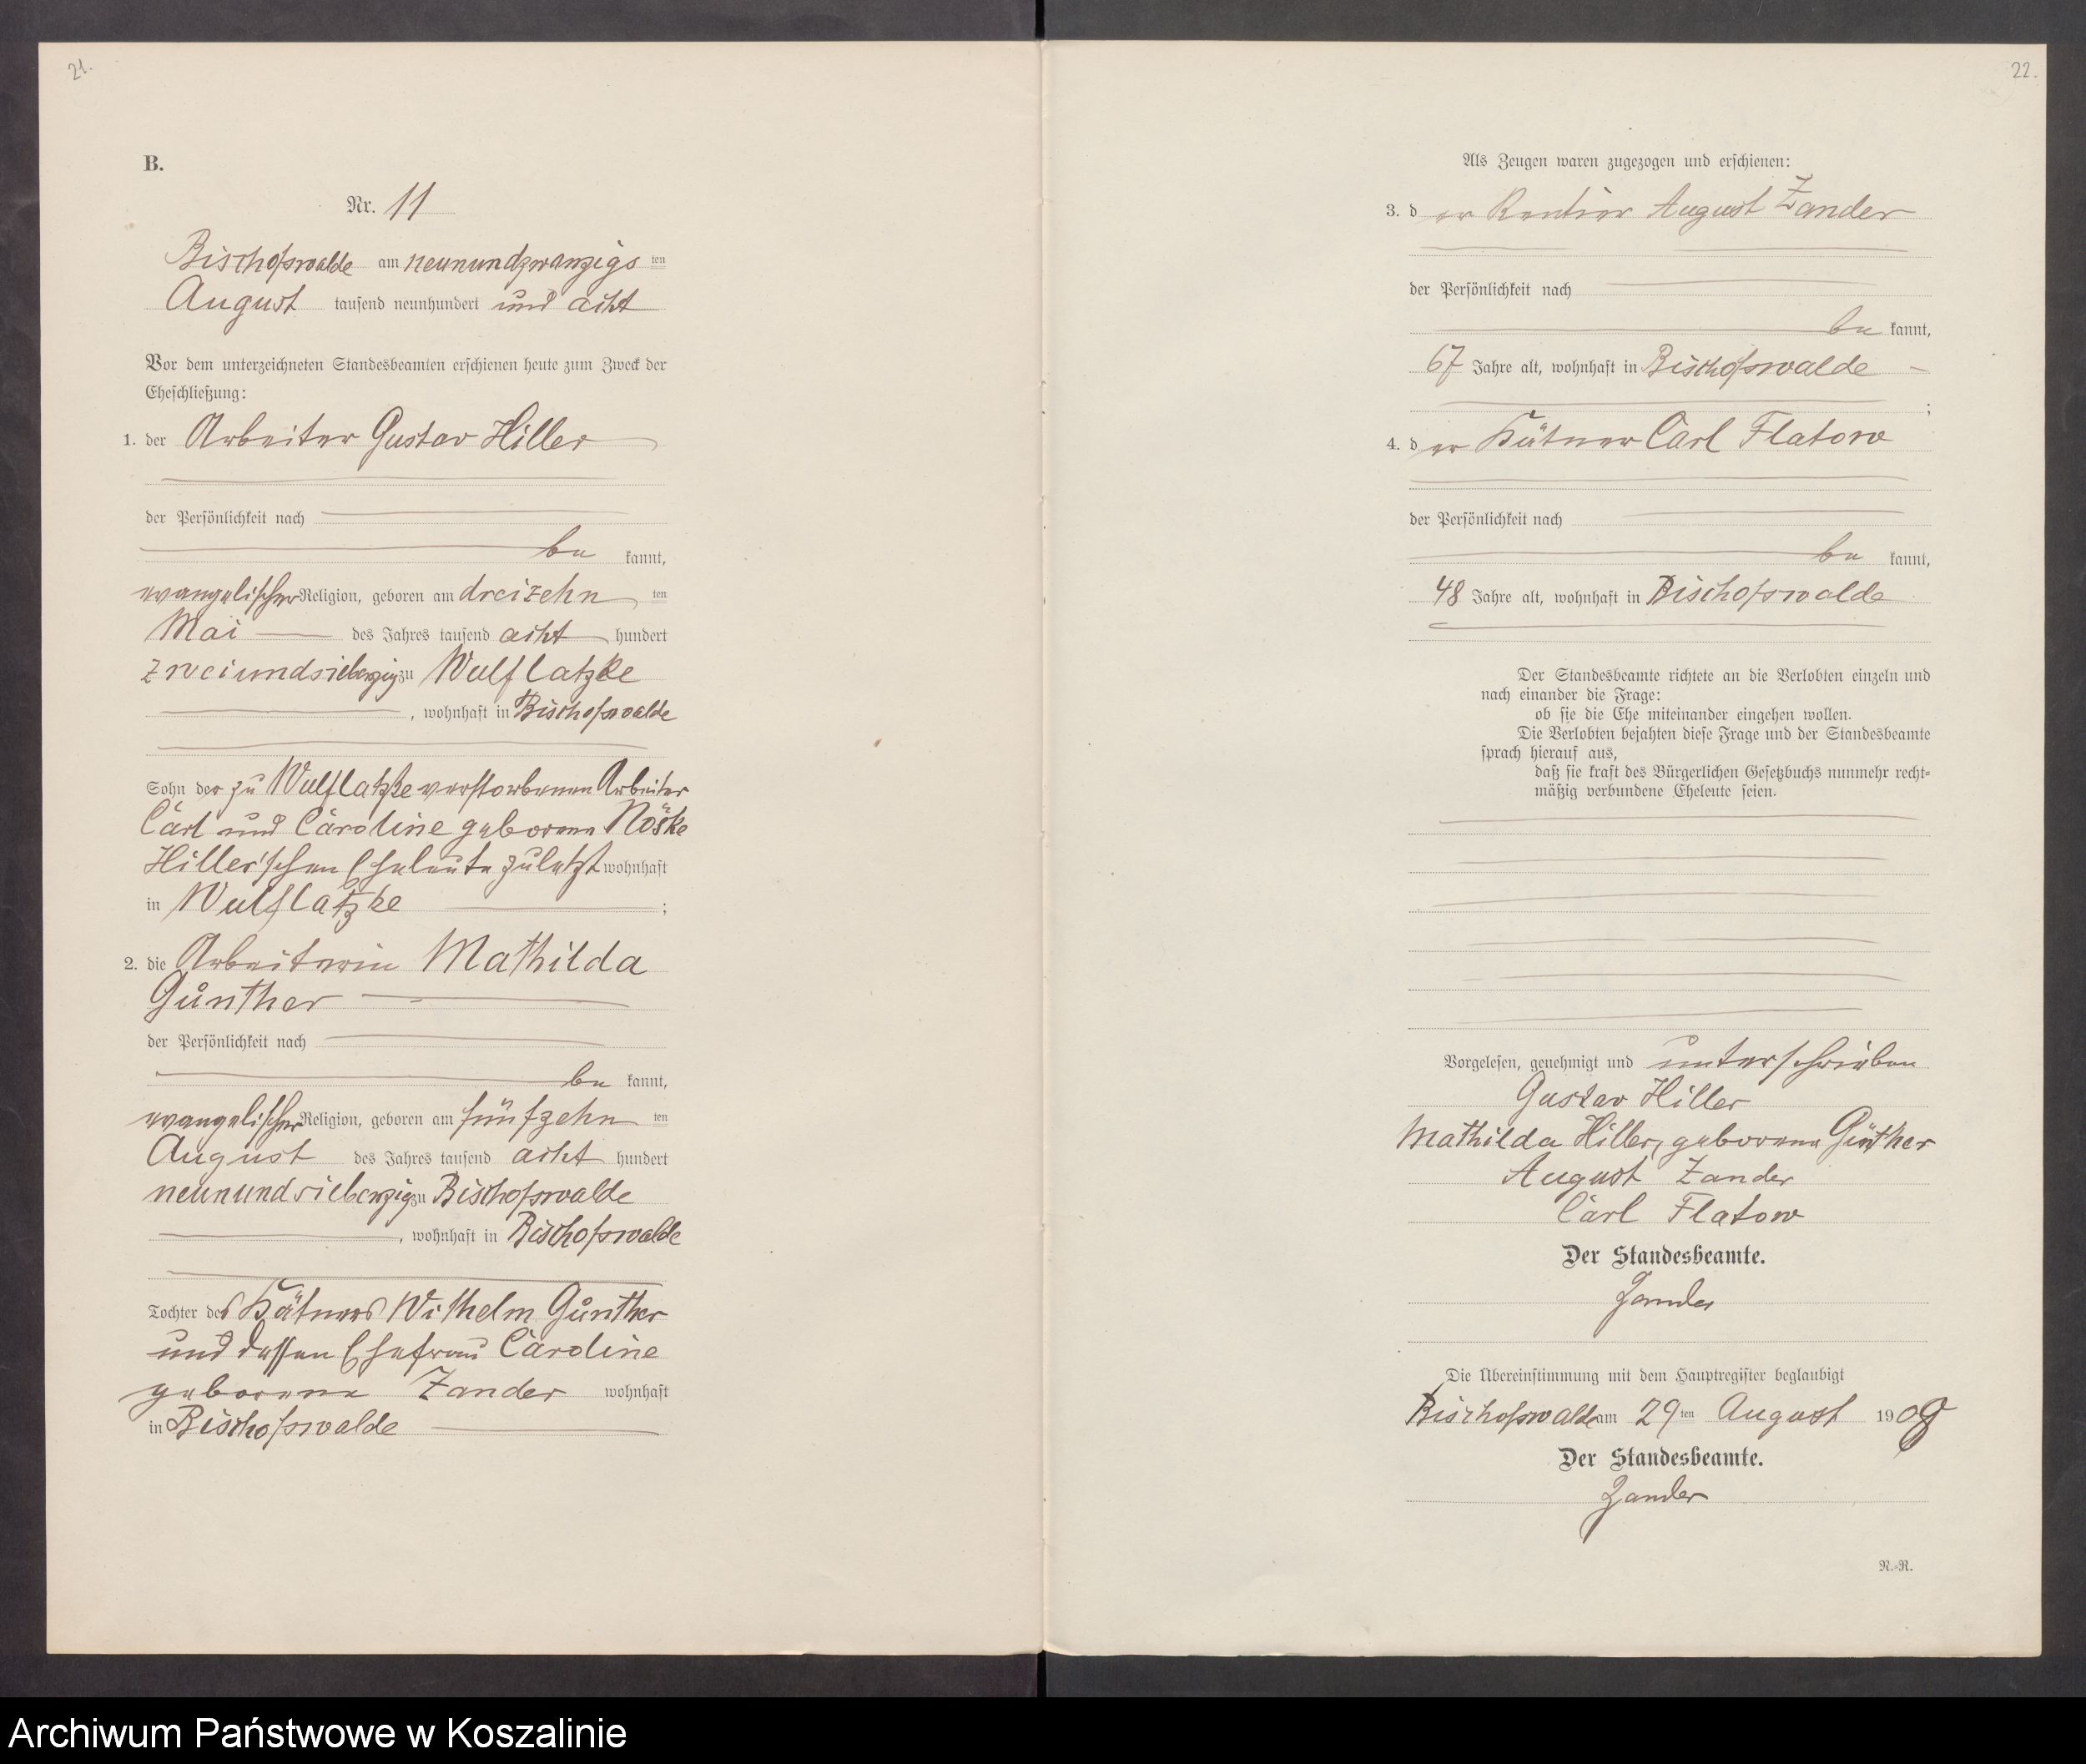 21.
B.
Nr. 11
Bischofswalde am neunundzwanzigs ten
August tausend neunhundert und acht
Vor dem unterzeichneten Standesbeamten erschienen heute zum Zweck der
Eheschließung:
1. der Arbeiter Gustav Hiller
der Persönlichkeit nach
be kannt,
evangelischer Religion, geboren am dreizehn ten
Mai des Jahres tausend acht hundert
zweiundsiebenzig zu Wulflatzke
, wohnhaft in Bischofswalde
Sohn der zu Wulflatzke verstorbenen Arbeiter
Carl und Caroline geborene Nöske
Hiller'schen Eheleute zuletzt wohnhaft
in Wulflatzke ;
2. die Arbeiterin Mathilda
Günther
der Persönlichkeit nach
be kannt,
evangelischer Religion, geboren am fünfzehn ten
August des Jahres tausend acht hundert
neunundsiebenzig zu Bischofswalde
, wohnhaft in Bischofswalde
Tochter des Kätners Wilhelm Günther
und dessen Ehefrau Caroline
geborene Zander wohnhaft
in Bischofswalde
22.
Als Zeugen waren zugezogen und erschienen:
3. d er Rentier August Zander
der Persönlichkeit nach
be kannt,
67 Jahre alt, wohnhaft in Bischofswalde
;
4. d er Kätner Carl Flatow
der Persönlichkeit nach
be kannt,
48 Jahre alt, wohnhaft in Bischofswalde
Der Standesbeamte richtete an die Verlobten einzeln und
nach einander die Frage:
ob sie die Ehe miteinander eingehen wollen.
Die Verlobten bejahten diese Frage und der Standesbeamte
sprach hierauf aus,
daß sie kraft des Bürgerlichen Gesetzbuchs nunmehr recht-
mäßig verbundene Eheleute seien.
Vorgelesen, genehmigt und unterschrieben
Gustav Hiller
Mathilda Hiller, geborene Günther
August Zander
Carl Flatow
Der Standesbeamte.
Zander
Die Übereinstimmung mit dem Hauptregister beglaubigt
Bischofswalde am 29 ten August 1908
Der Standesbeamte.
Zander
N.-R.
Archiwum Państwowe w Koszalinie